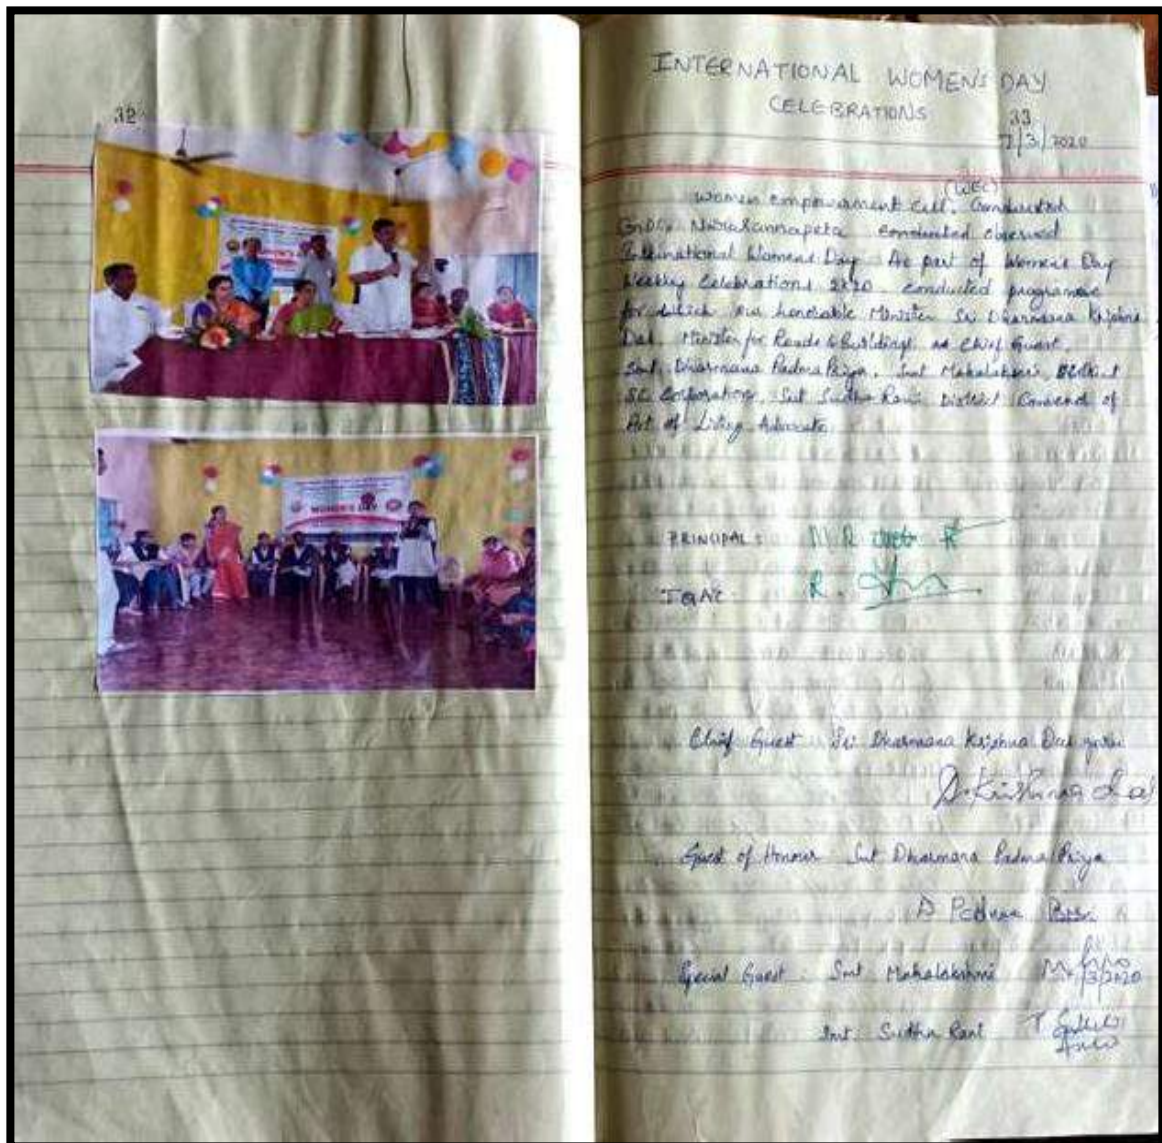 32
WOMEN'S DAY
INTERNATIONAL WOMENS DAY
CELEBRATIONS
33
7/3/2020
(WEC)
Women empowerment cell, Conducted
GDC, Narasannapeta conducted observed
International Womens Day. As part of Womens Day
Weekly Celebrations 2k20. conducted programme
for which our honorable Minister Sri Dharmana Krishna
Das, Minister for Roads & Buildings as Chief Guest,
Smt. Dharmana Padma Priya, Smt Mahalakshmi,
SC Corporation, Smt Sudha Rani District of
Art of Living Advocate
PRINCIPAL :
IQAC
R.
Chief Guest : Sri Dharmana Krishna Das garu
D. Krishna das
Guest of Honour Smt Dharmana Padma Priya
D Padma
Special Guest : Smt Mahalakshmi
/3/2020
Smt. Sudha Rani